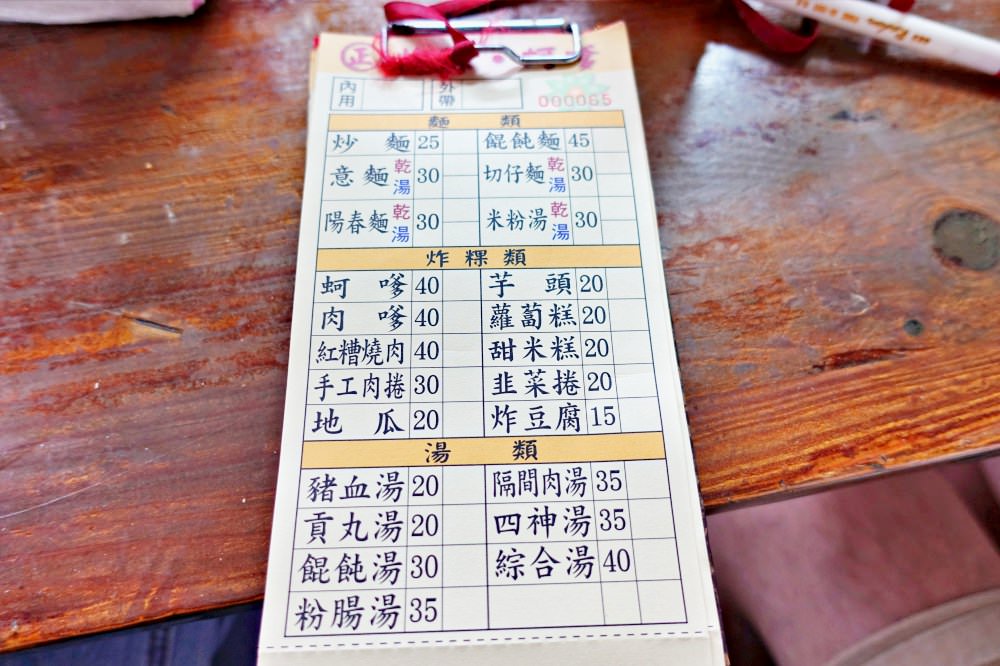 正
內用 外帶 000065
麵類
炒麵 25 餛飩麵 45
意麵 乾湯 30 切仔麵 乾湯 30
陽春麵 乾湯 30 米粉湯 乾湯 30
炸粿類
蚵嗲 40 芋頭 20
肉嗲 40 蘿蔔糕 20
紅糟燒肉 40 甜米糕 20
手工肉捲 30 韭菜捲 20
地瓜 20 炸豆腐 15
湯類
豬血湯 20 隔間肉湯 35
貢丸湯 20 四神湯 35
餛飩湯 30 綜合湯 40
粉腸湯 35